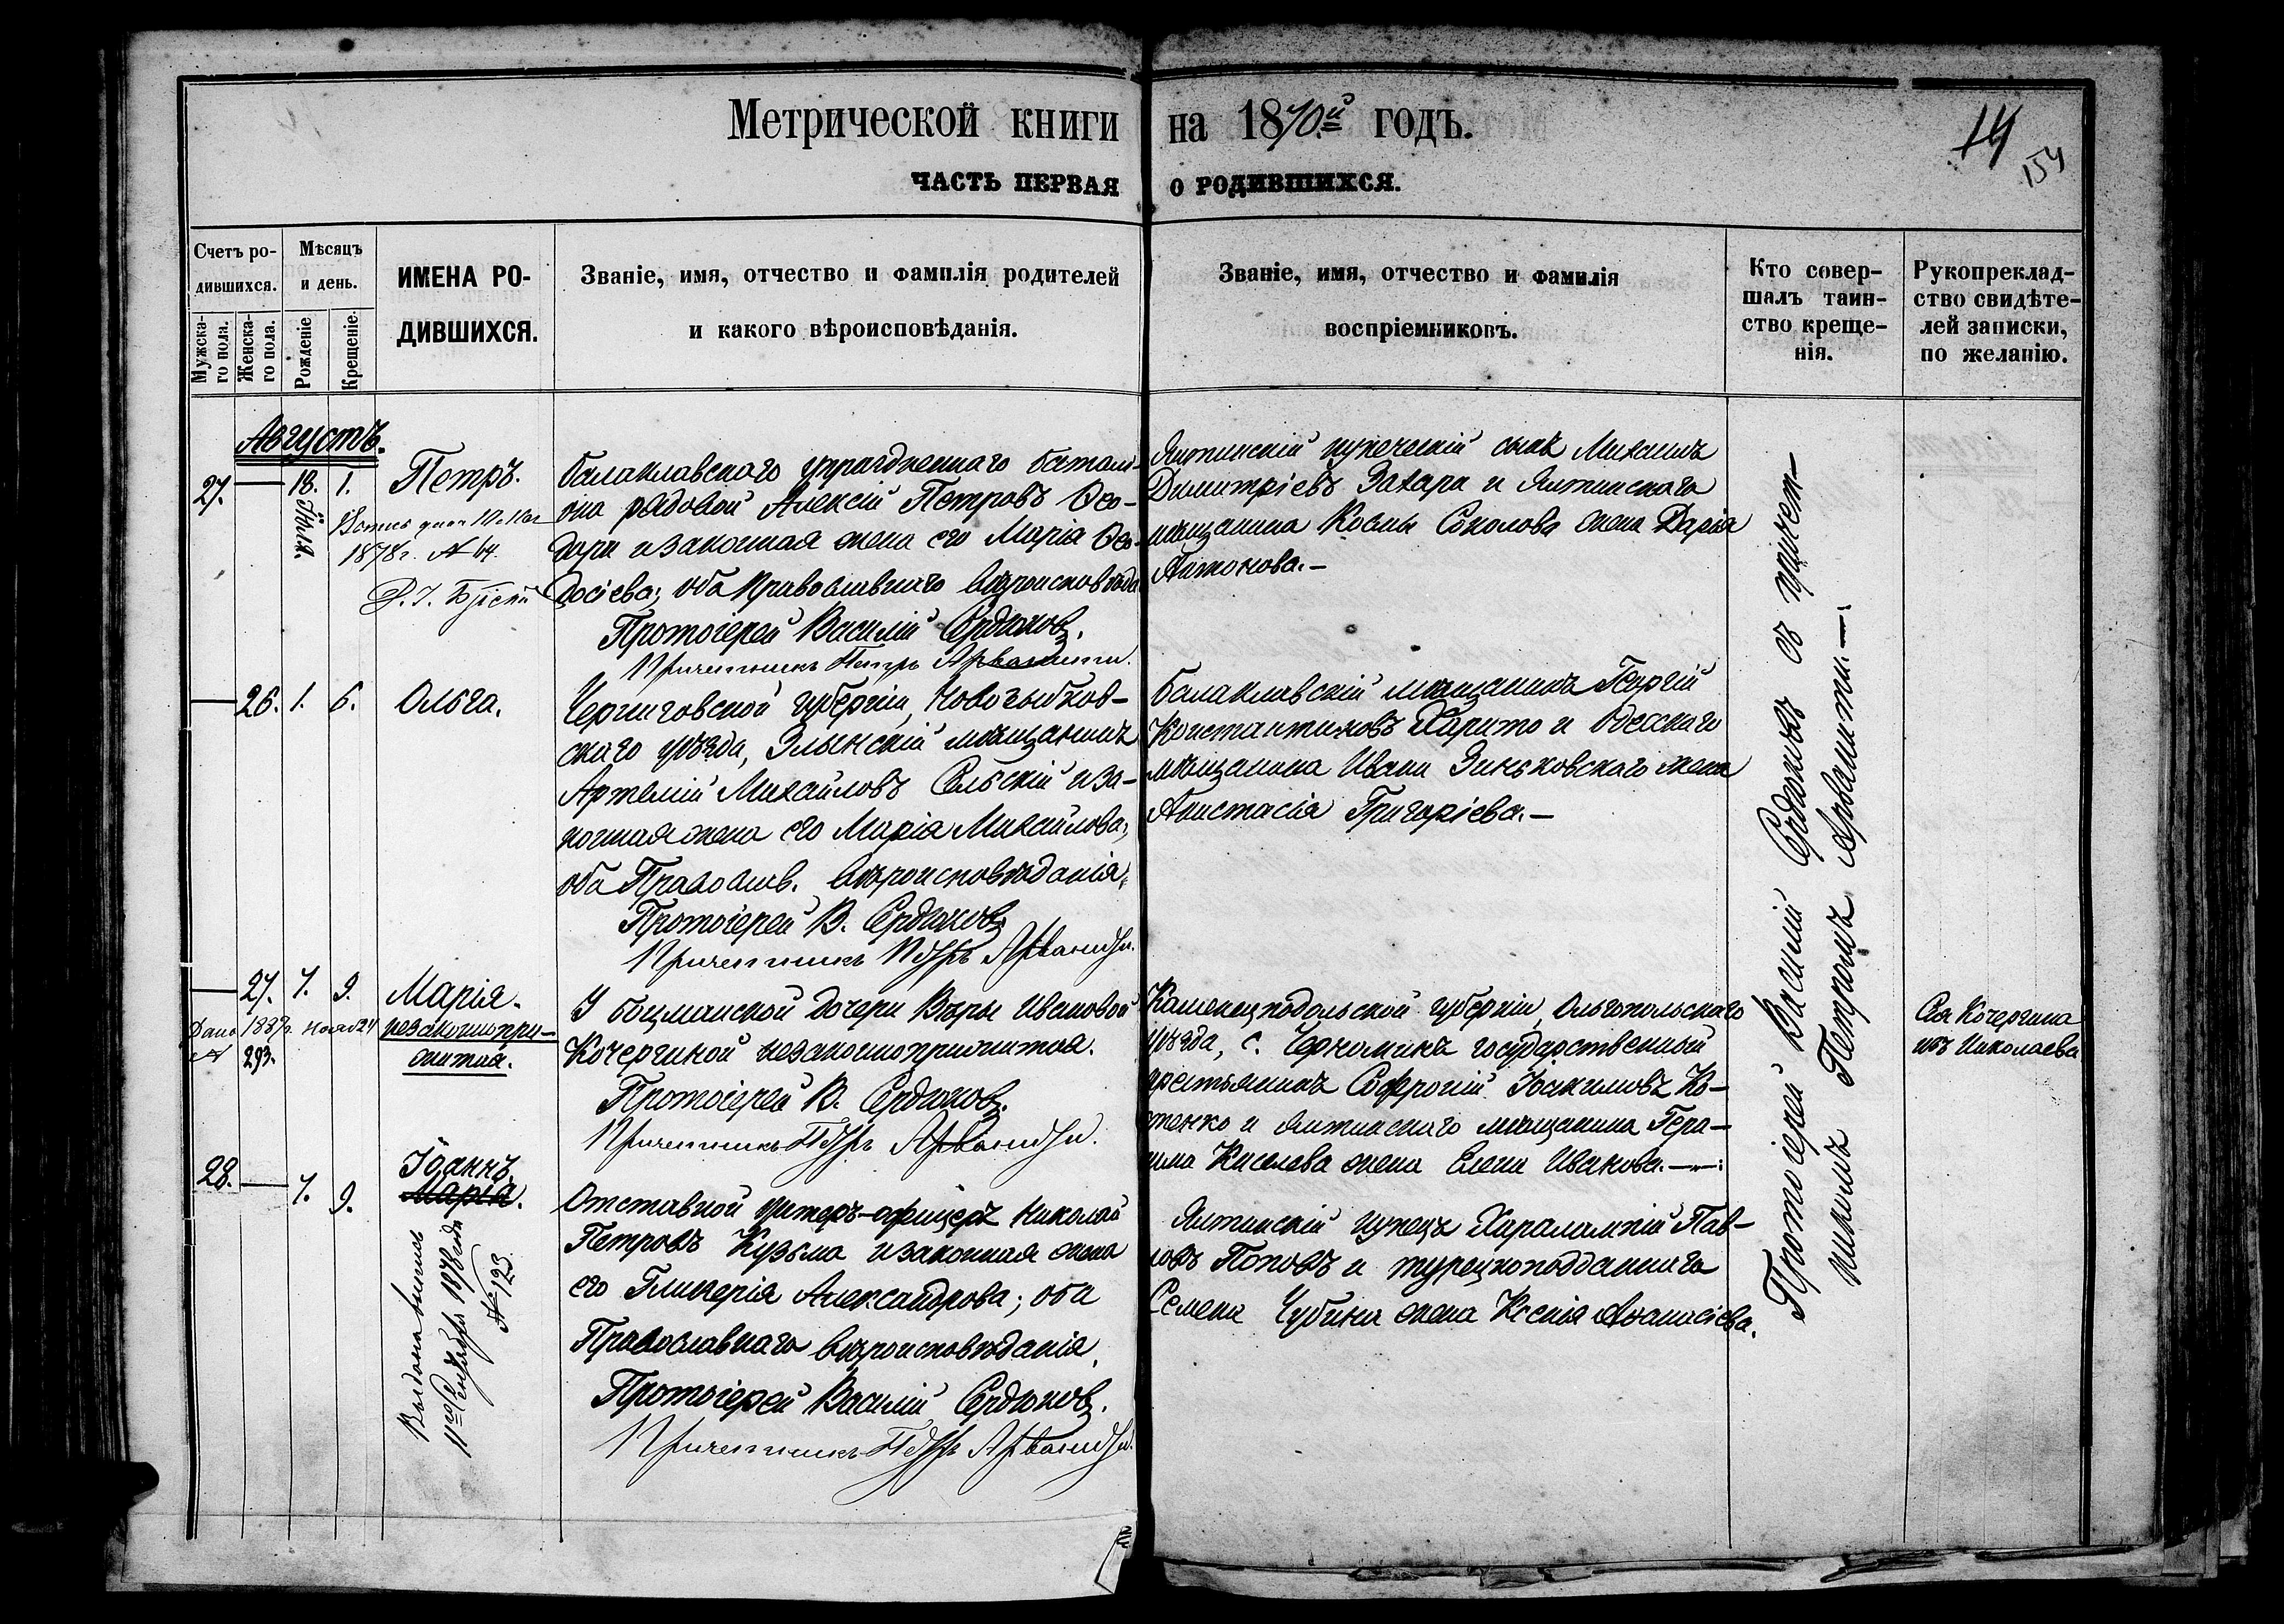 Метрической книги на 1870.й годъ.
14
154
ЧАСТЬ ПЕРВАЯ О РОДИВШИХСЯ.
Счетъ ро-
дившихся.
Мужска-
го пола.
Женска-
го пола.
Мѣсяцъ
и день.
Рожденіе
Крещеніе.
ИМЕНА РО-
ДИВШИХСЯ.
Званіе, имя, отчество и фамилія родителей
и какого вѣроисповѣданія.
Званіе, имя, отчество и фамилія
воспріемниковъ.
Кто совер-
шалъ таин-
ство креще-
нія.
Рукопреклад-
ство свидѣте-
лей записки,
по желанію.
Августъ.
27. — 18. 1. Петръ.
Іюля.
1878 г. № 64.
Балаклавскаго упраздненнаго батали-
она рядовой Алексій Петровъ Ѳео-
дори и законная жена его Марія Ѳео-
досіева; оба Православнаго вѣроисповѣда
Протоіерей Василій Сердюковъ.
Причетникъ Петръ Арванити.
Ялтинскій купеческій сынъ Михаилъ
Димитріевъ Захари и Ялтинскаго
мѣщанина Космы Соколова жена Дарія
Антонова. —
— 26. 1. 6. Ольга.
Черниговской губерніи, Новозыбков-
скаго уѣзда, Злынскій мѣщанинъ
Артемій Михайловъ Сельскій и за-
конная жена его Марія Михайлова;
оба Православ. вѣроисповѣданія.
Протоіерей В. Сердюковъ.
Причетникъ Петръ Арванити.
Балаклавскій мѣщанинъ Георгій
Константиновъ Харито и Одесскаго
мѣщанина Ивана Зиньковскаго жена
Анастасія Григоріева. —
— 27. 7. 9. Марія.
незаконнопри-
житая.
Дано 1887 г. Нояб 24
№ 293.
У боцманской дочери Вѣры Ивановой
Кочергиной незаконноприжитая.
Протоіерей В. Сердюковъ.
Причетникъ Петръ Арванити.
Каменецподольской губерніи, Ольгопольскаго
уѣзда, с. Черномина государственный
крестьянинъ Софроній Іоакимовъ Ко-
стенко и Ялтинскаго мѣщанина Гера-
сима Киселева жена Елена Иванова. —
Ся Кочергина
изъ Николаева
28. — 7. 9. Іоаннъ.
Марія.
Выдана выпись
11го Сентября 1878 года
№ 123.
Отставной унтеръ-офицеръ Николай
Петровъ Кузьма и законная жена
его Гликерія Александрова; оба
Православнаго вѣроисповѣданія.
Протоіерей Василій Сердюковъ.
Причетникъ Петръ Арванити.
Ялтинскій купецъ Харалампій Пав-
ловъ Поповъ и турецкоподданнаго
Семена Чубина жена Ксенія Аѳанасіева.
Протоіерей Василій Сердюковъ съ причет-
никомъ Петромъ Арванити. —